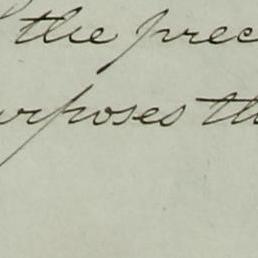 the prec
urposes th